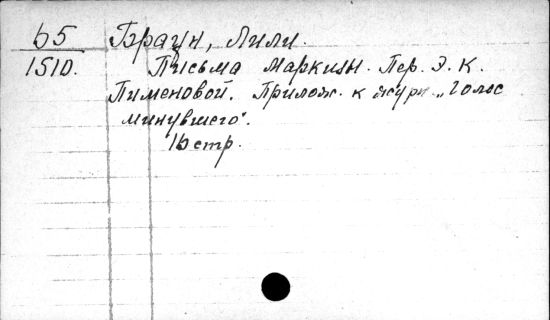 Б5 Браун, Лили.
1510. Письма Маркизы. Пер. Э. К.
Пименовой. Прилож. к журн. „Голос
минувшего".
16 стр.